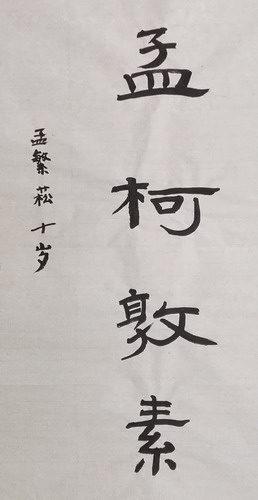 孟柯敦素
孟繁菘 十岁